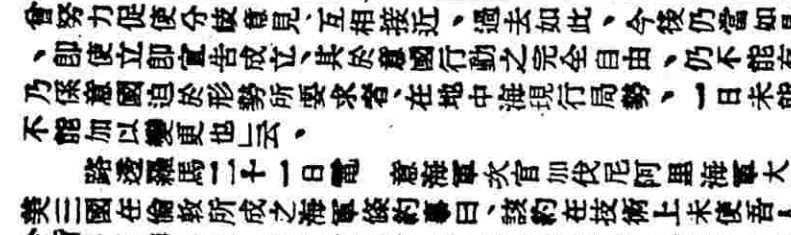 會努力促使分歧意見、互相接近、過去如此、今後仍當如
、即使立即宣告成立、其於意國行動之完全自由、仍不能有
乃係意國迫於形勢所要求者、在地中海現行局勢、一日未能
不能加以變更也」云、
路透羅馬二十一日電 意海軍次官加伐尼阿里海軍大
美三國在倫敦所成之海軍條約事曰、該約在技術上未使吾